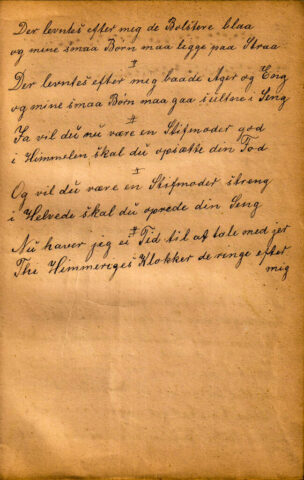 Der levntes efter mig de Bolstere blaa
og mine smaa Börn maa ligge paa Straa
Der levntes efter mig baade Ager og Eng
og mine smaa Börn maa gaa sultne i Seng
Ja vil du nu være en Stifmoder god
i Himmelen skal du opsætte din Fod
Og vil du være en Stifmoder streng
i Helvede skal du oprede din Seng
Nu haver jeg ei Tid til at tale med jer
Thi Himmeriges Klokker de ringe efter
mig